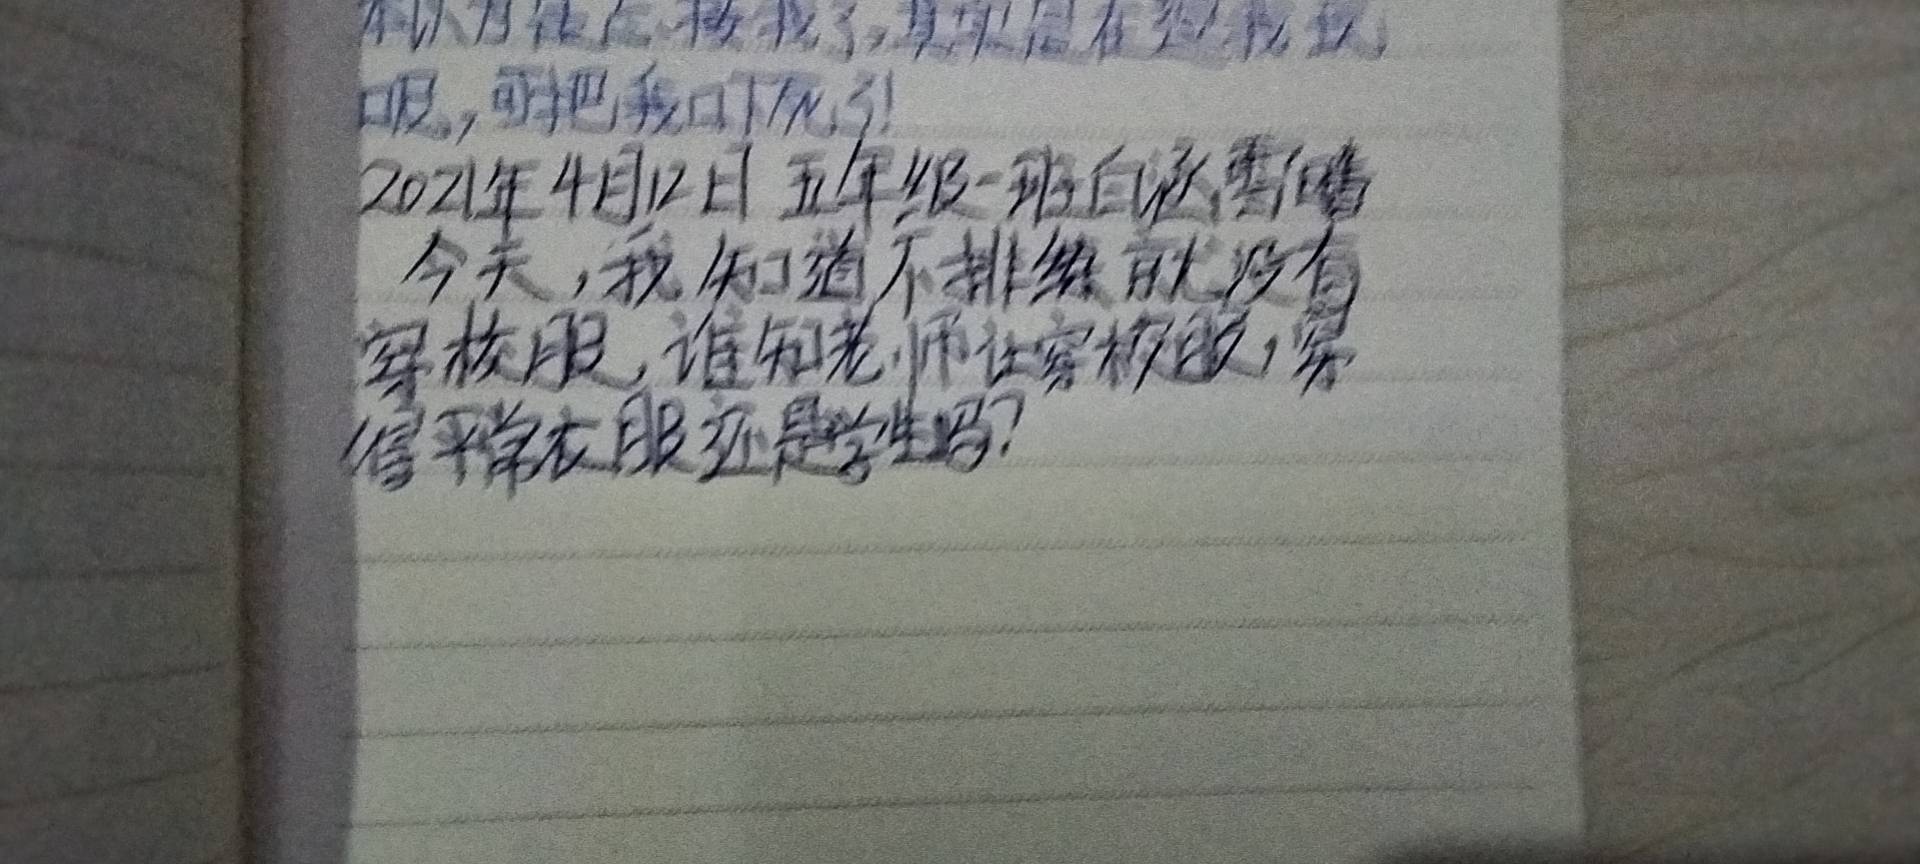 我了,
服,可把我吓坏了!
2021年4月12日 五年级一班白涵雪 晴
今天,我知道不排练就没有
穿校服,谁知老师让穿校服,穿
平常衣服还是学生吗?